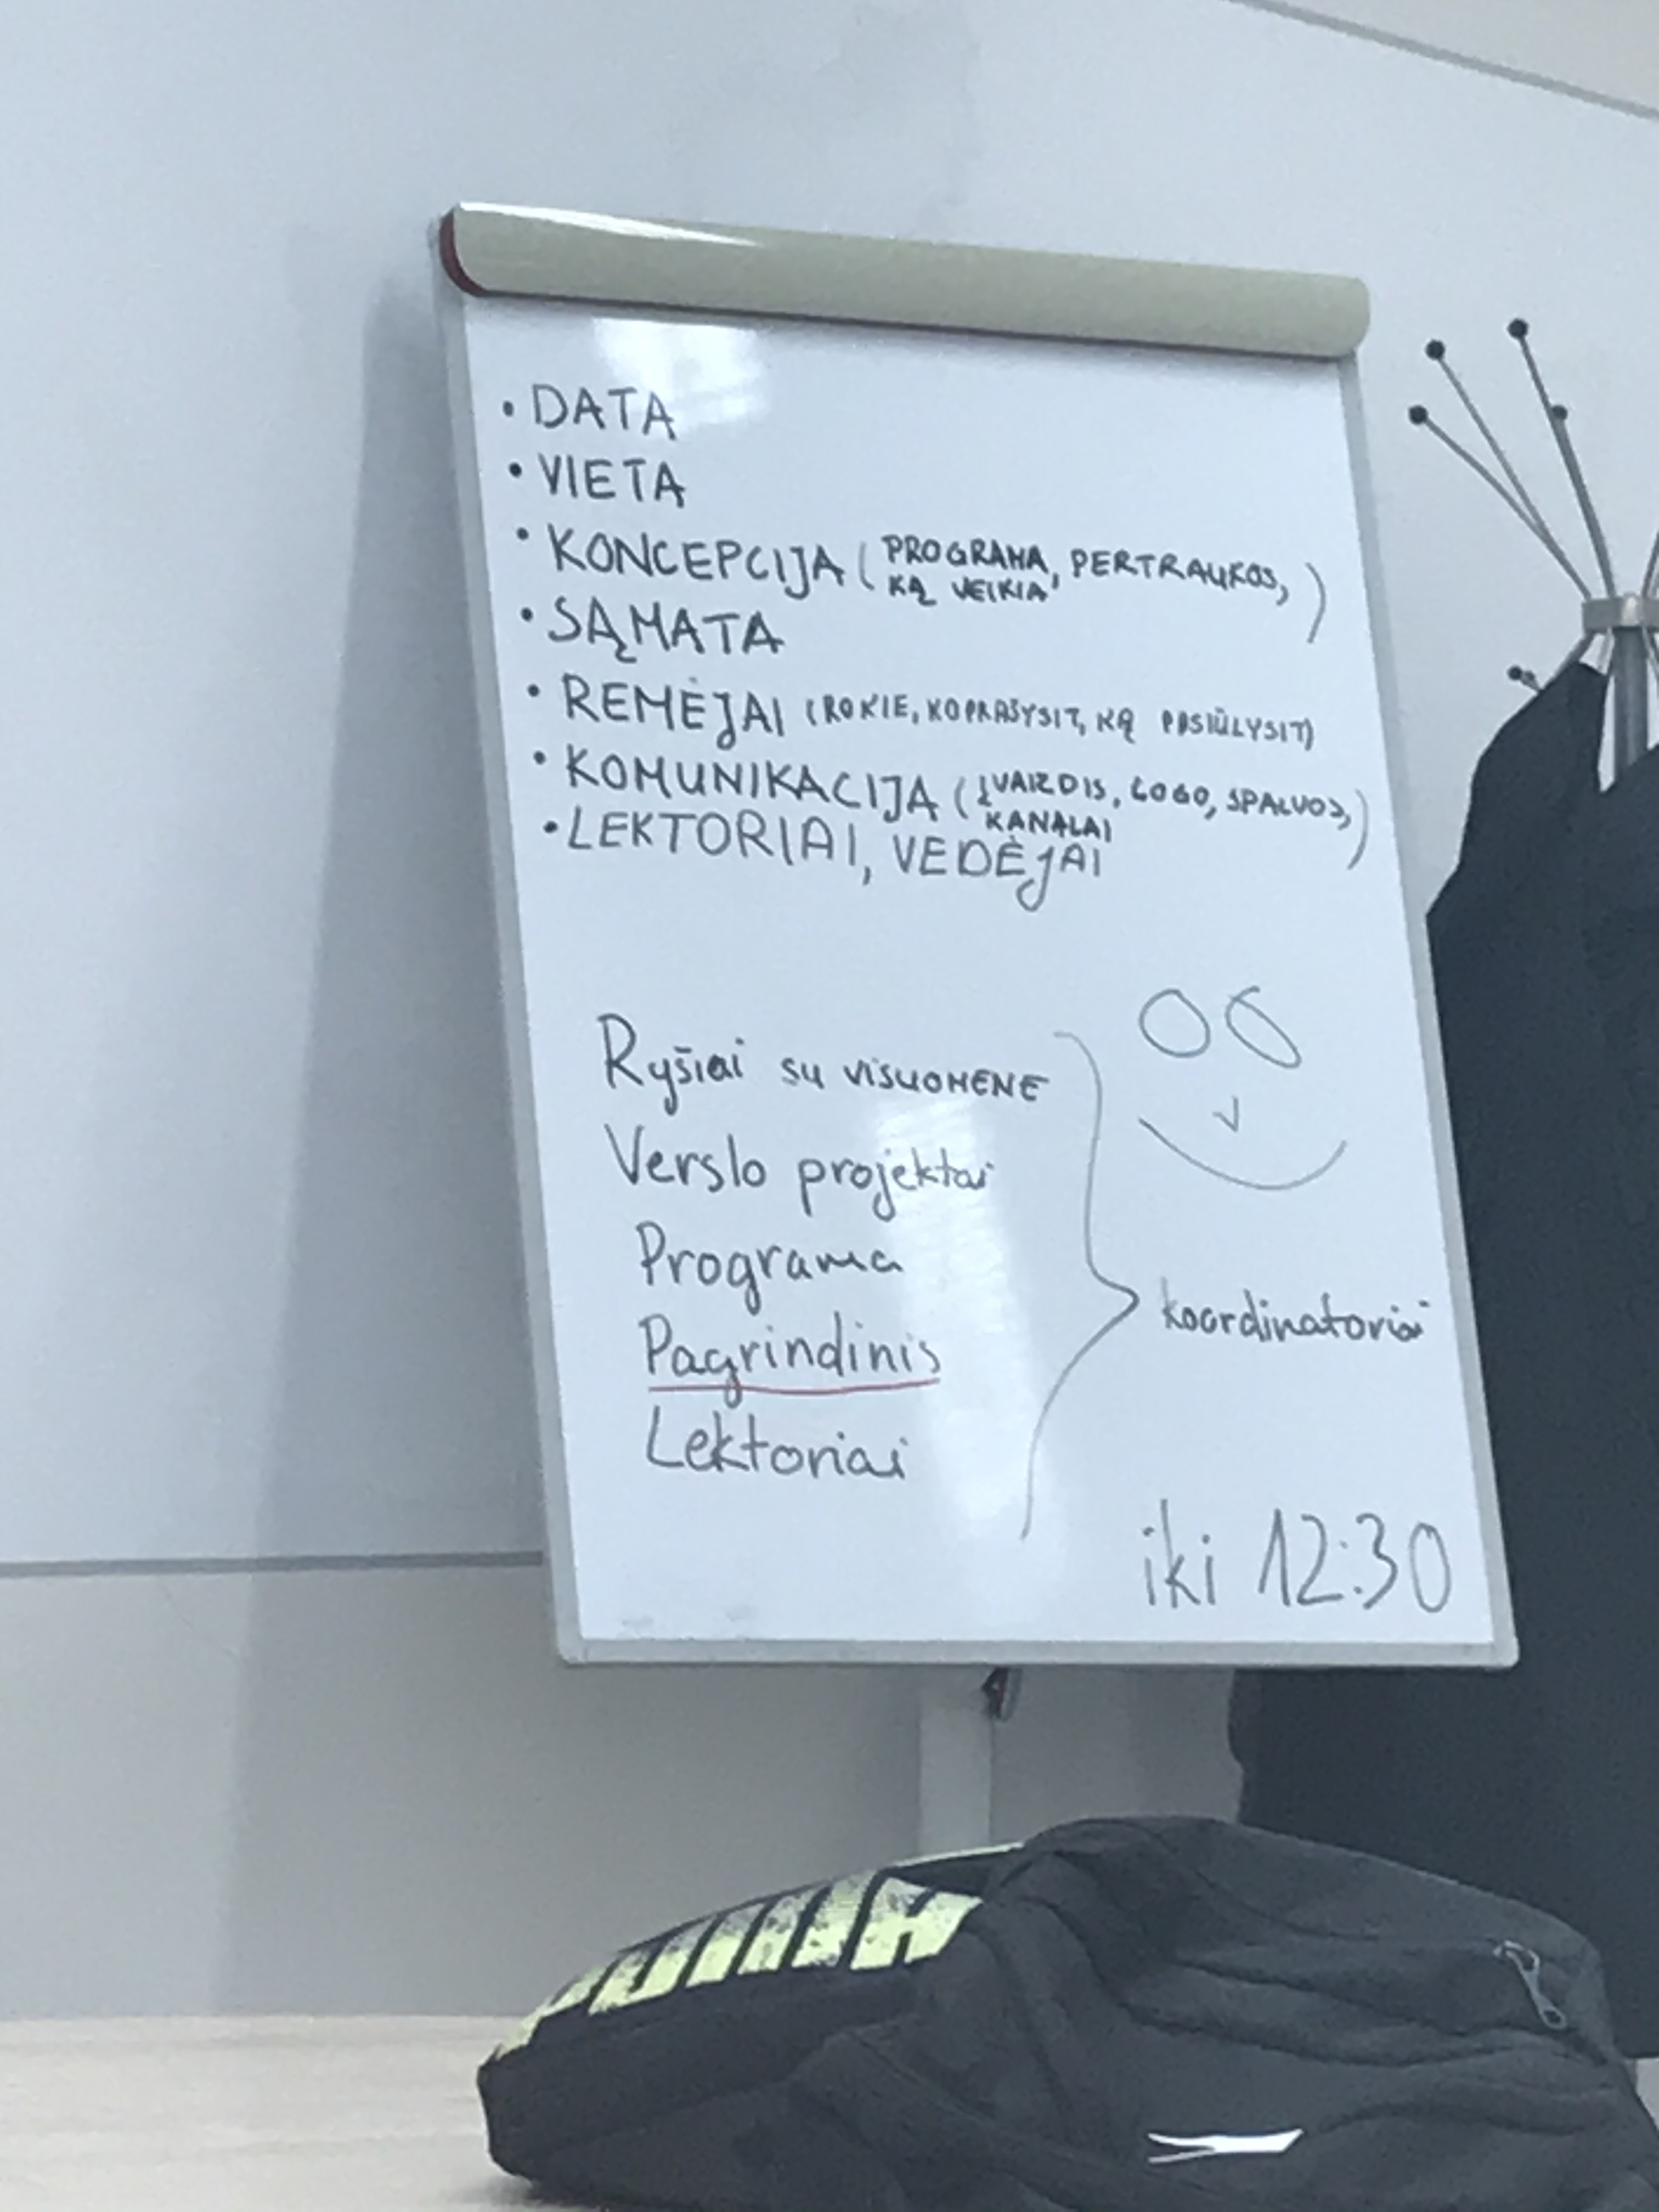 • DATA
• VIETA
• KONCEPCIJA ( PROGRAMA, PERTRAUKOS, )
KĄ VEIKIA
• SĄMATA
• REMĖJAI (KOKIE, KO PRAŠYSIT, KĄ PASIŪLYSIT)
• KOMUNIKACIJA ( ĮVAIZDIS, LOGO, SPALVOS, )
KANALAI
• LEKTORIAI, VEDĖJAI
Ryšiai su VISUOMENE
Verslo projektai
Programa
Pagrindinis
Lektoriai
koordinatoriai
iki 12:30
PUMA